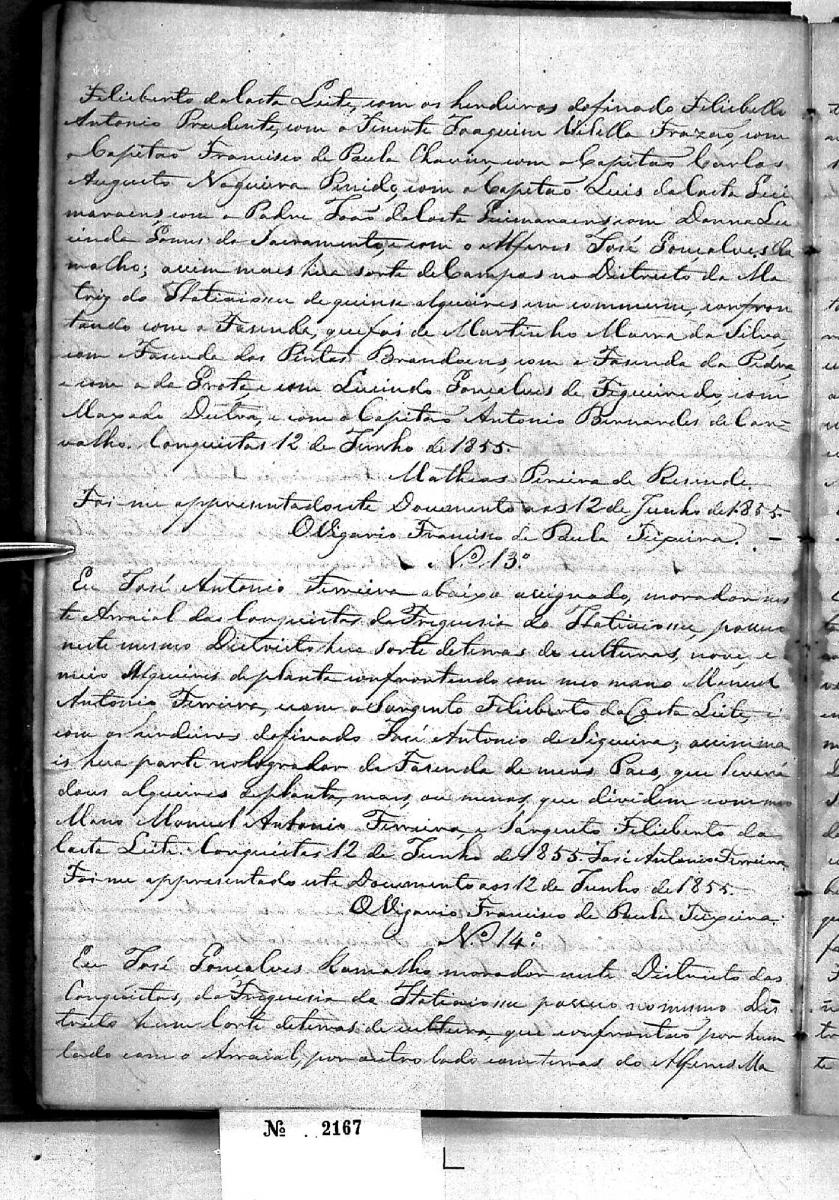 Felisberto da Costa Leite, com os herdeiros do finado Felisbello
Antonio Prudente, com o Tenente Joaquim Vilella Frazaõ, com
o Capitaõ Francisco de Paula com o Capitaõ Carlos
Augusto Nogueira Penido, com o Capitaõ Luis da Costa Gui
maraens com o Padre Joaõ da Costa Guimaraens com Donna Lu
cinda Gomes do Sacramento, e com o Alferes José Gonçalves Ra
malho; assim mais hua sorte de Campos no Districto da Ma
triz do Itatiaiossu de quinse alqueires em commum, confron
tando com a Fasenda, que foi de Martinho Marra da Silva,
com a Fasenda dos Pintos Brandoens, com a Fasenda da Pedra,
e com a da Grota, e com Lucindo Gonçalves de Figueiredo, e com
Maxado Dutra, e com o Capitaõ Antonio Bernardes de Car=
valho. Conquistas 12 de Junho de 1855.
Mathias Pereira de Resende.
Foi-me appresentado este Documento aos 12 de Junho de 1855.
O Vigario Francisco de Paula Teixeira.
No. 13.
Eu José Antonio Ferreira abaixo assignado, morador nes
te Arraial das Conquistas da Freguesia do Itatiaiossu, possuo
neste mesmo Districto hua sorte de terras de culturas, nove, e
meio Alqueires de planta confrontando com meo mano Manuel
Antonio Ferreira, e com o Sargento Felisberto da Costa Leite, e
com os herdeiros do finado José Antonio de Siqueira; assim ma
is hua parte no logrador da Fasenda de meus Paes, que levará
dous alqueires de planta, mais, ou menos, que dividem com meo
Mano Manuel Antonio Ferreira, e Sargento Felisberto da
Costa Leite. Conquistas 12 de Junho de 1855. José Antonio Ferreira
Foi-me appresentado este Documento aos 12 de Junho de 1855.
O Vigario Francisco de Paula Teixeira.
No. 14.
Eu José Gonçalves Ramalho morador neste Districto das
Conquistas, da Freguesia da Itatiaiossu possuo no mesmo Dis
tricto huma sorte de terras de cultura, que confrontaõ por hum
lado com o Arraial, por outro lado com terras do Alferes Ma
No 2167